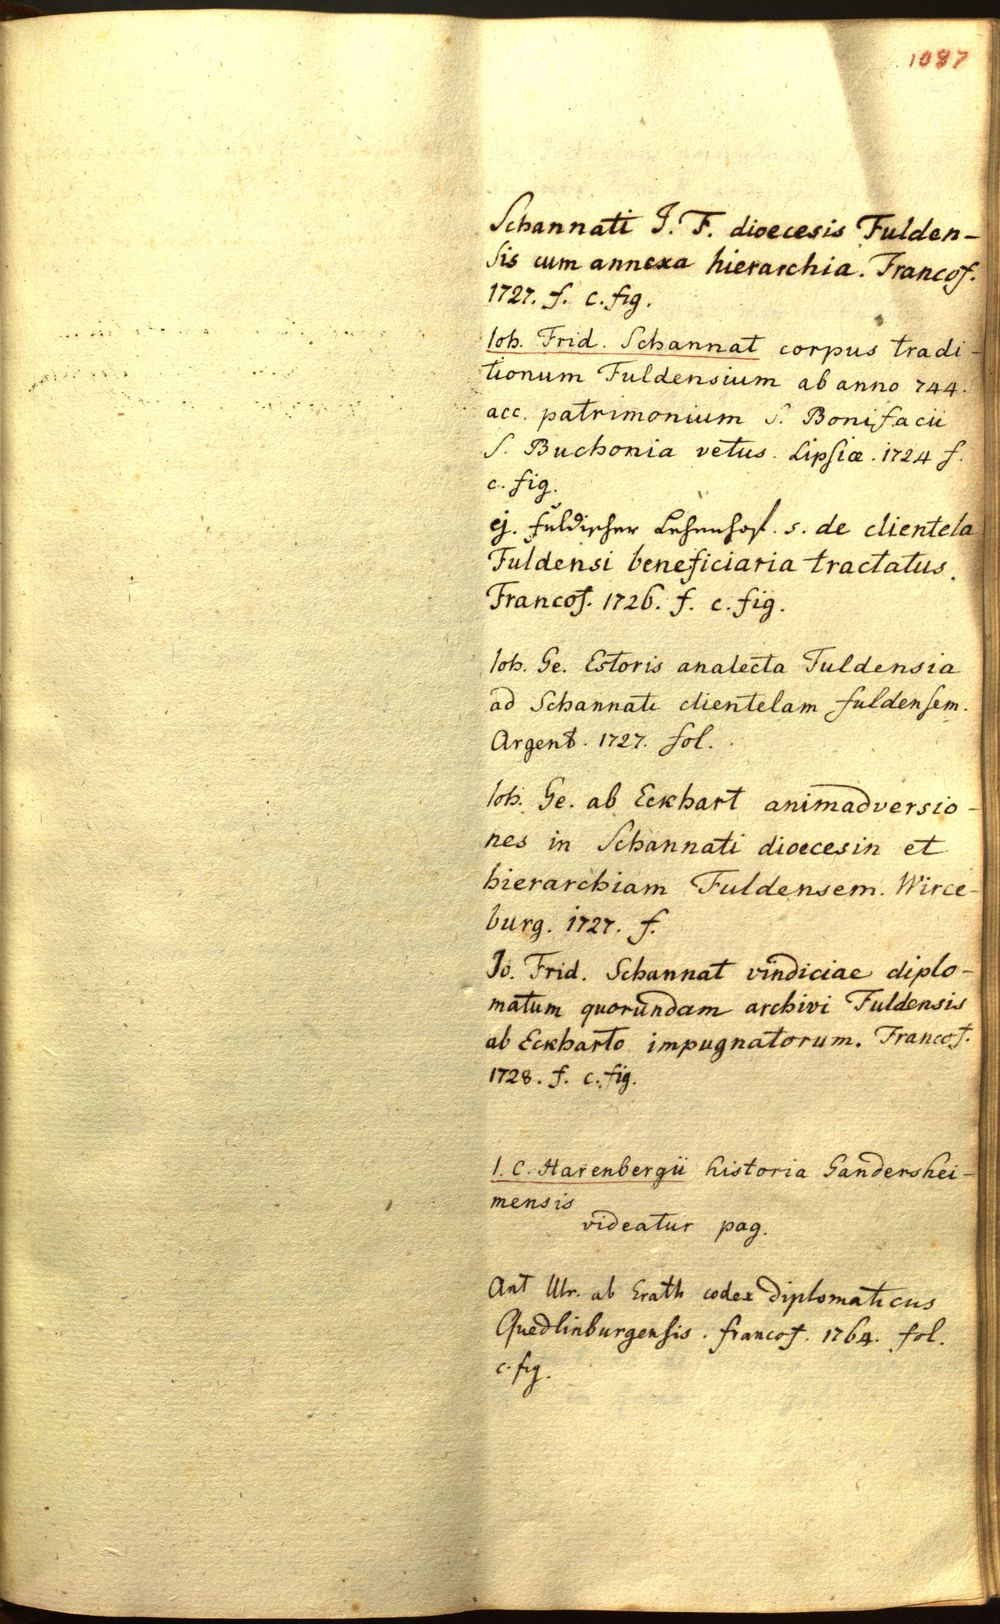 1087
Schannati J. F. dioecesis Fulden-
sis cum annexa hierarchia. Francof.
1727. f. c. fig.
Ioh. Frid. Schannat corpus tradi-
tionum Fuldensium ab anno 744.
acc. patrimonium S. Bonifacii
S. Buchonia vetus. Lipsiæ. 1724 f.
c. fig.
ej. Fuldischer Lehenhof. s. de clientela
Fuldensi beneficiaria tractatus.
Francof. 1726. f. c. fig.
Ioh. Ge. Estoris analecta Fuldensia
ad Schannati clientelam fuldensem.
Argent. 1727. fol.
Ioh. Ge. ab Eckhart animadversio-
nes in Schannati dioecesin et
hierarchiam Fuldensem. Wirce-
burg. 1727. f.
Jo. Frid. Schannat vindiciae diplo-
matum quorundam archivi Fuldensis
ab Eckharto impugnatorum. Francof.
1728. f. c. fig.
I. C. Harenbergii historia Gandershei-
mensis
videatur pag.
Ant Ulr. ab Erath codex diplomaticus
Quedlinburgensis. francof. 1764. fol.
c. fig.